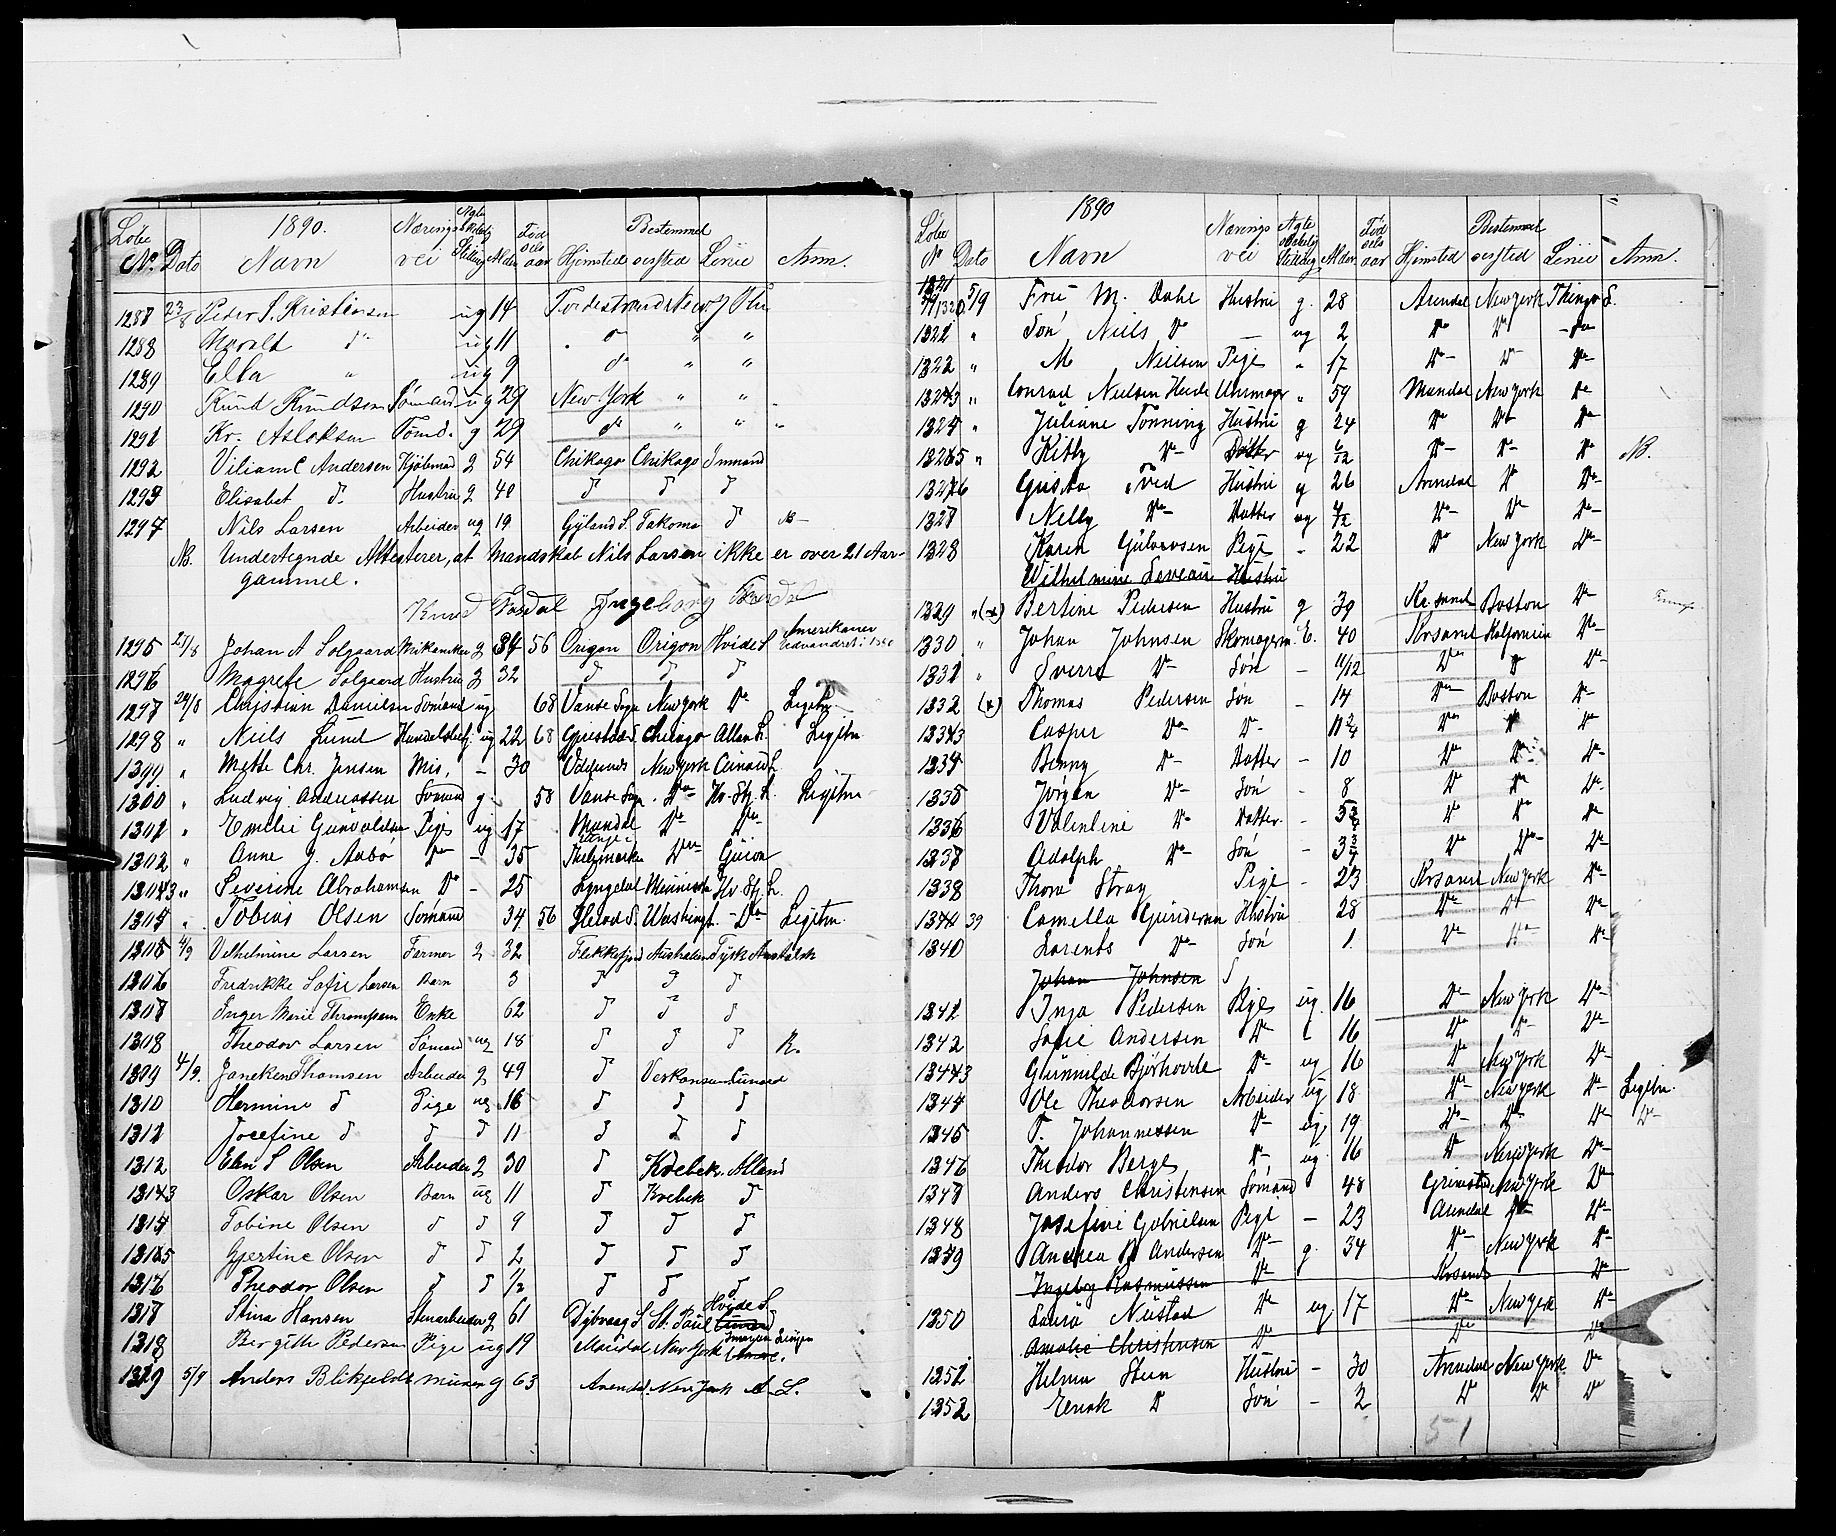 1890.
Løbe No. Dato Navn Nærings vei Ægte skabelig Stilling Alder Fødselsaar Hjemsted Bestemmelsessted Linie Anm.
1287 23/8 Peder S. Kristensen ug 14
1288 Harald do ug 11 do " "
1289 Ella " ug 9 do " "
1290 Knud Knudsen Sømand ug 29 New York " "
1291 Kr. Aslaksen Tømd. g 29 do " " "
1292 Viliam C Andersen Kjöbmad g 54 Chikago Chikago Inmand
1293 Elisabet d. Hustru g 40 d d d
1294 Nils Larsen Arbeider ug 19 Gyland S. Takoma d
NB. Undertegnde Attesterer, at Mandskab Nils Larsen ikke er over 21 Aar
gammel.
Knud Fosdal Ingeborg Fosdal
1295 25/8 Johan A Solgaard Mekaniker g 34 56 Origon Origon Hvide S Amerikaner Udvandret i 1880
1296 Magrete Solgaard Hustru g 32 d d d
1297 28/8 Christian Danielsen Sømand ug 68 Vanse Sogn New York Do Legitm
1298 " Niels Lund Handelsbetj. ug 22 68 Chicago Allan L. Legitm
1299 " Mette Chr. Jensen Mis, - 30 New York Cunard L
1300 " Ludvig Andreassen Sømand g. 58 Vanse Sogn Do Hv. Stj. L. Legitm
1301 " Emelie Gunvaldsen Pige ug 17 Mandal Do Do
1302 " Anne J. Aabø Do - 35 Thelemarken Do Guion
1303 " Severine Abrahamsen Do - 25 Lyngdal Minnesota Hv. Stj. L.
1304 " Tobias Olsen Sømand 34 56 Washingt. - Do Legitm.
1305 4/9 Vilhelmine Larsen Farmer g 32 Flekkefjord Australien Tysk Australsk
1306 Fredrikke Sofie Larsen Barn 3 d d d
1307 Inger Marie Thompsen Enke 62 d d d
1308 Theodor Larsen Sömand ug 18 d d d
1309 4/9. Janeken Thomsen Arbeider g 49 d Veskonsen Cunard
1310 Hermine d Pige ug 16 d d d
1311 Josefine d d d 11 d d d
1312 Elen S Olsen Arbeider g 30 d Kvebek Alland
1313 Oskar Olsen Barn ug 11 d Kvebek d
1314 Tobine Olsen d d 9 d d d
1315 Gjertine Olsen d d 2 d d d
1316 Theodor Olsen d d 1/2 d d d
1317 Stina Hansen Stenarbeider g 61 Dybvaag S. St. Paul Hvide S.
1318 Bergitte Pedersen Pige ug 19 Mandal New York
1319 5/9 Anders Blikfeldt g 63 Arendal New York A L.
1890
Løbe No Dato Navn Nærings vei Ægte skabelig Stilling Alder Fødselsaar Hjemsted Bestemmelsessted Linie Anm
1321 1320 5/9 Fru M. Dahl Hustru g. 28 Arendal New York Thingv L.
1321 " Søn Niels Do - ug 2 Do Do - Do
1322 " M Nielsen Pige " 17 Do Do Do
1323 " Conrad Nielsen Heide Uhrmager " 59 Mandal New York Do
1324 " Juliane Tønning Hustru g 24 Do Do Do
1325 " Kitty Do Datter ug 6/12 Do Do Do NB.
1326 Gusta Tved Hustru g 26 Arendal Do Do
1327 Nelly Do Datter ug Do Do Do
1328 Karen Gulovsen Pige - 22 Do New York Do
Wilhelmine Leveau Hustru
1329 " (x) Bertine Pedersen Hustru g 39 Kr.sand Boston Do
1330 " Johan Johnsen Skomagerm. E. 40 Krsand Kalfornien Do
1331 " Sverre Do Søn - 11/12 Do Do Do
1332 (x) Thomas Pedersen Søn - 14 Do Boston Do
1333 Casper Do Do 11 3/4 Do Do Do
1334 Benny Do Datter - 10 Do Do Do
1335 Jørgen Do Søn - 8 Do Do Do
1336 Valentine Do Datter - 5 Do Do Do
1337 Adolph Do Søn - 3 3/4 Do Do Do
1338 Thora Stray Pige - 23 Krsand New York Do
39 Camella Gundersen Hustru 28 Do Do Do
1340 Lorents Do Søn 1. Do Do Do
Johan Johnsen
1341 Inga Pedersen Pige ug. 16 Do New York Do
1342 Sofie Andersen Do 16 Do Do Do
1343 Gunnilde Do ug 16 Do New York Do
1344 Ole Theodorsen Arbeider ug 18 Do New York Do Legitm.
1345 T. Johannessen Do ug 19 Do Do Do Do
1346 Theodor Berge Do ug 16 Do New York Do
1347 Anders Christensen Sømand 48 Grimstad New York Do
1348 Josefine Gabrielsen Pige - 23 Arendal Do Do
1349 Andrea Andersen Do g. 34 Do New York Do
Ingeborg Rasmussen Do Krsand Do
1350 Laura Neustad Do ug 17 Do New York Do
Amalie Christensen Do Do Do
1351 Helma Steen Hustru - 30 Arendal New York Do
1352 Enok D Søn - 2 Do Do Do
51